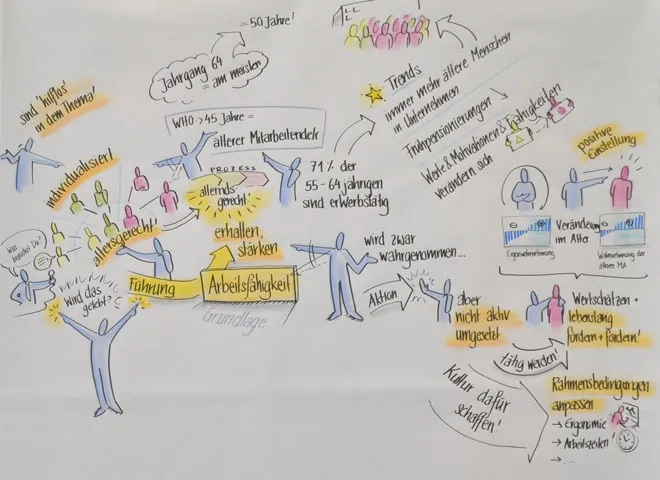 = 50 Jahre!
Jahrgang 64
= am meisten
sind 'hilflos'
in dem Thema!
WHO > 45 Jahre =
älterer Mitarbeitende/r
individualisiert
PROZESS
gerecht!
altersgerecht!
71% der
55-64 jährigen
sind erwerbstätig
erhalten,
stärken
Führung
Arbeitsfähigkeit
Grundlage
wird das
gelebt?
Trends
immer mehr ältere Menschen
in Unternehmen
Frühpensionierungen
Werte & Motivationen & Fähigkeiten
verändern sich
positive
Einstellung
Veränderung
im Alter
Eigenwahrnehmung
Wahrnehmung der
ältere MA
wird zwar
wahrgenommen...
Aktion
aber
nicht aktiv
umgesetzt
Wertschätzen +
lebenslang
fördern + fordern!
tätig werden!
Kultur dafür
schaffen!
Rahmensbedingungen
anpassen
→ Ergonomie
→ Arbeitszeiten!
→ ...